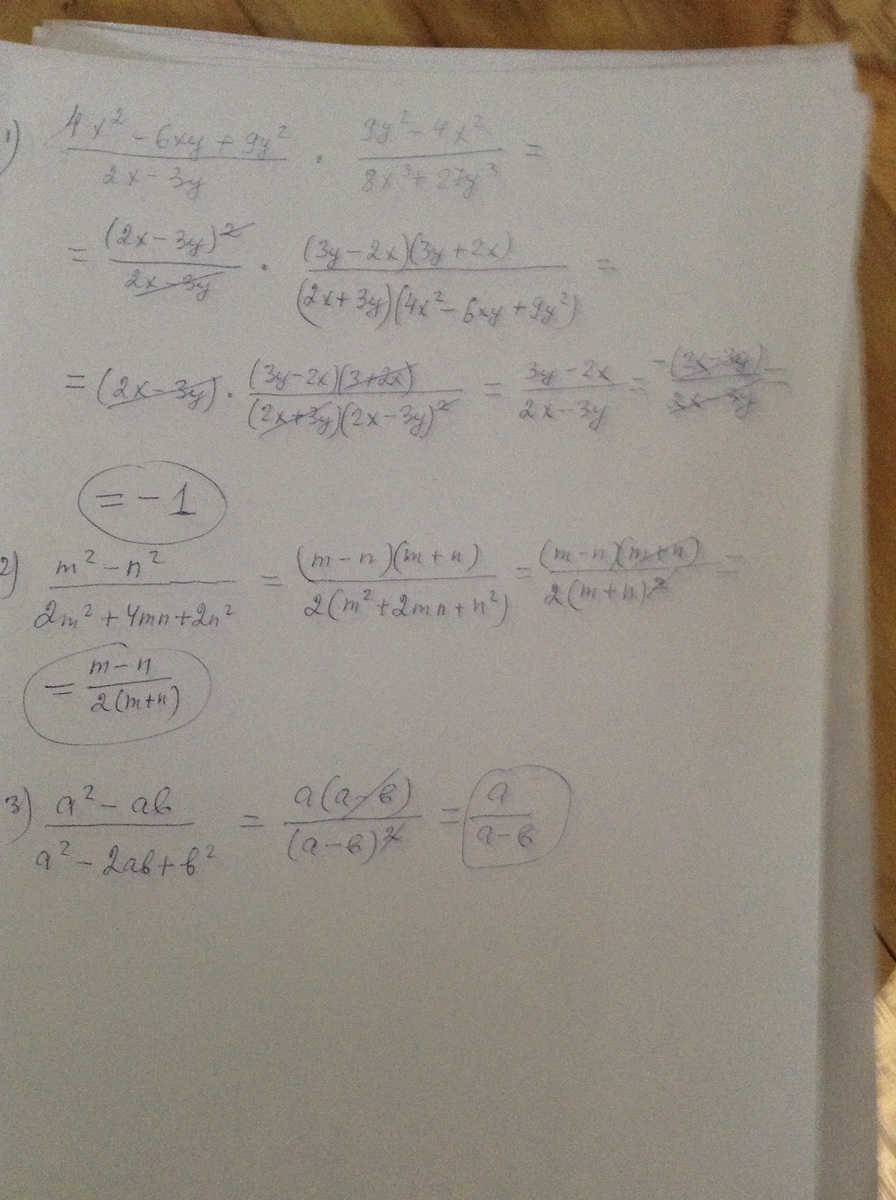 1) (4x² - 6xy + 9y²)/(2x - 3y) · (9y² - 4x²)/(8x³ + 27y³) =
= (2x - 3y)²/(2x - 3y) · (3y - 2x)(3y + 2x)/(2x + 3y)(4x² - 6xy + 9y²) =
= (2x - 3y) · (3y - 2x)(3 + 2x)/(2x + 3y)(2x - 3y)² = (3y - 2x)/(2x - 3y) = -(2x - 3y)/(2x - 3y) =
= -1
2) (m² - n²)/(2m² + 4mn + 2n²) = (m - n)(m + n)/2(m² + 2mn + n²) = (m - n)(m + n)/2(m + n)² =
= (m - n)/2(m + n)
3) (a² - ab)/(a² - 2ab + b²) = a(a - b)/(a - b)² = a/(a - b)